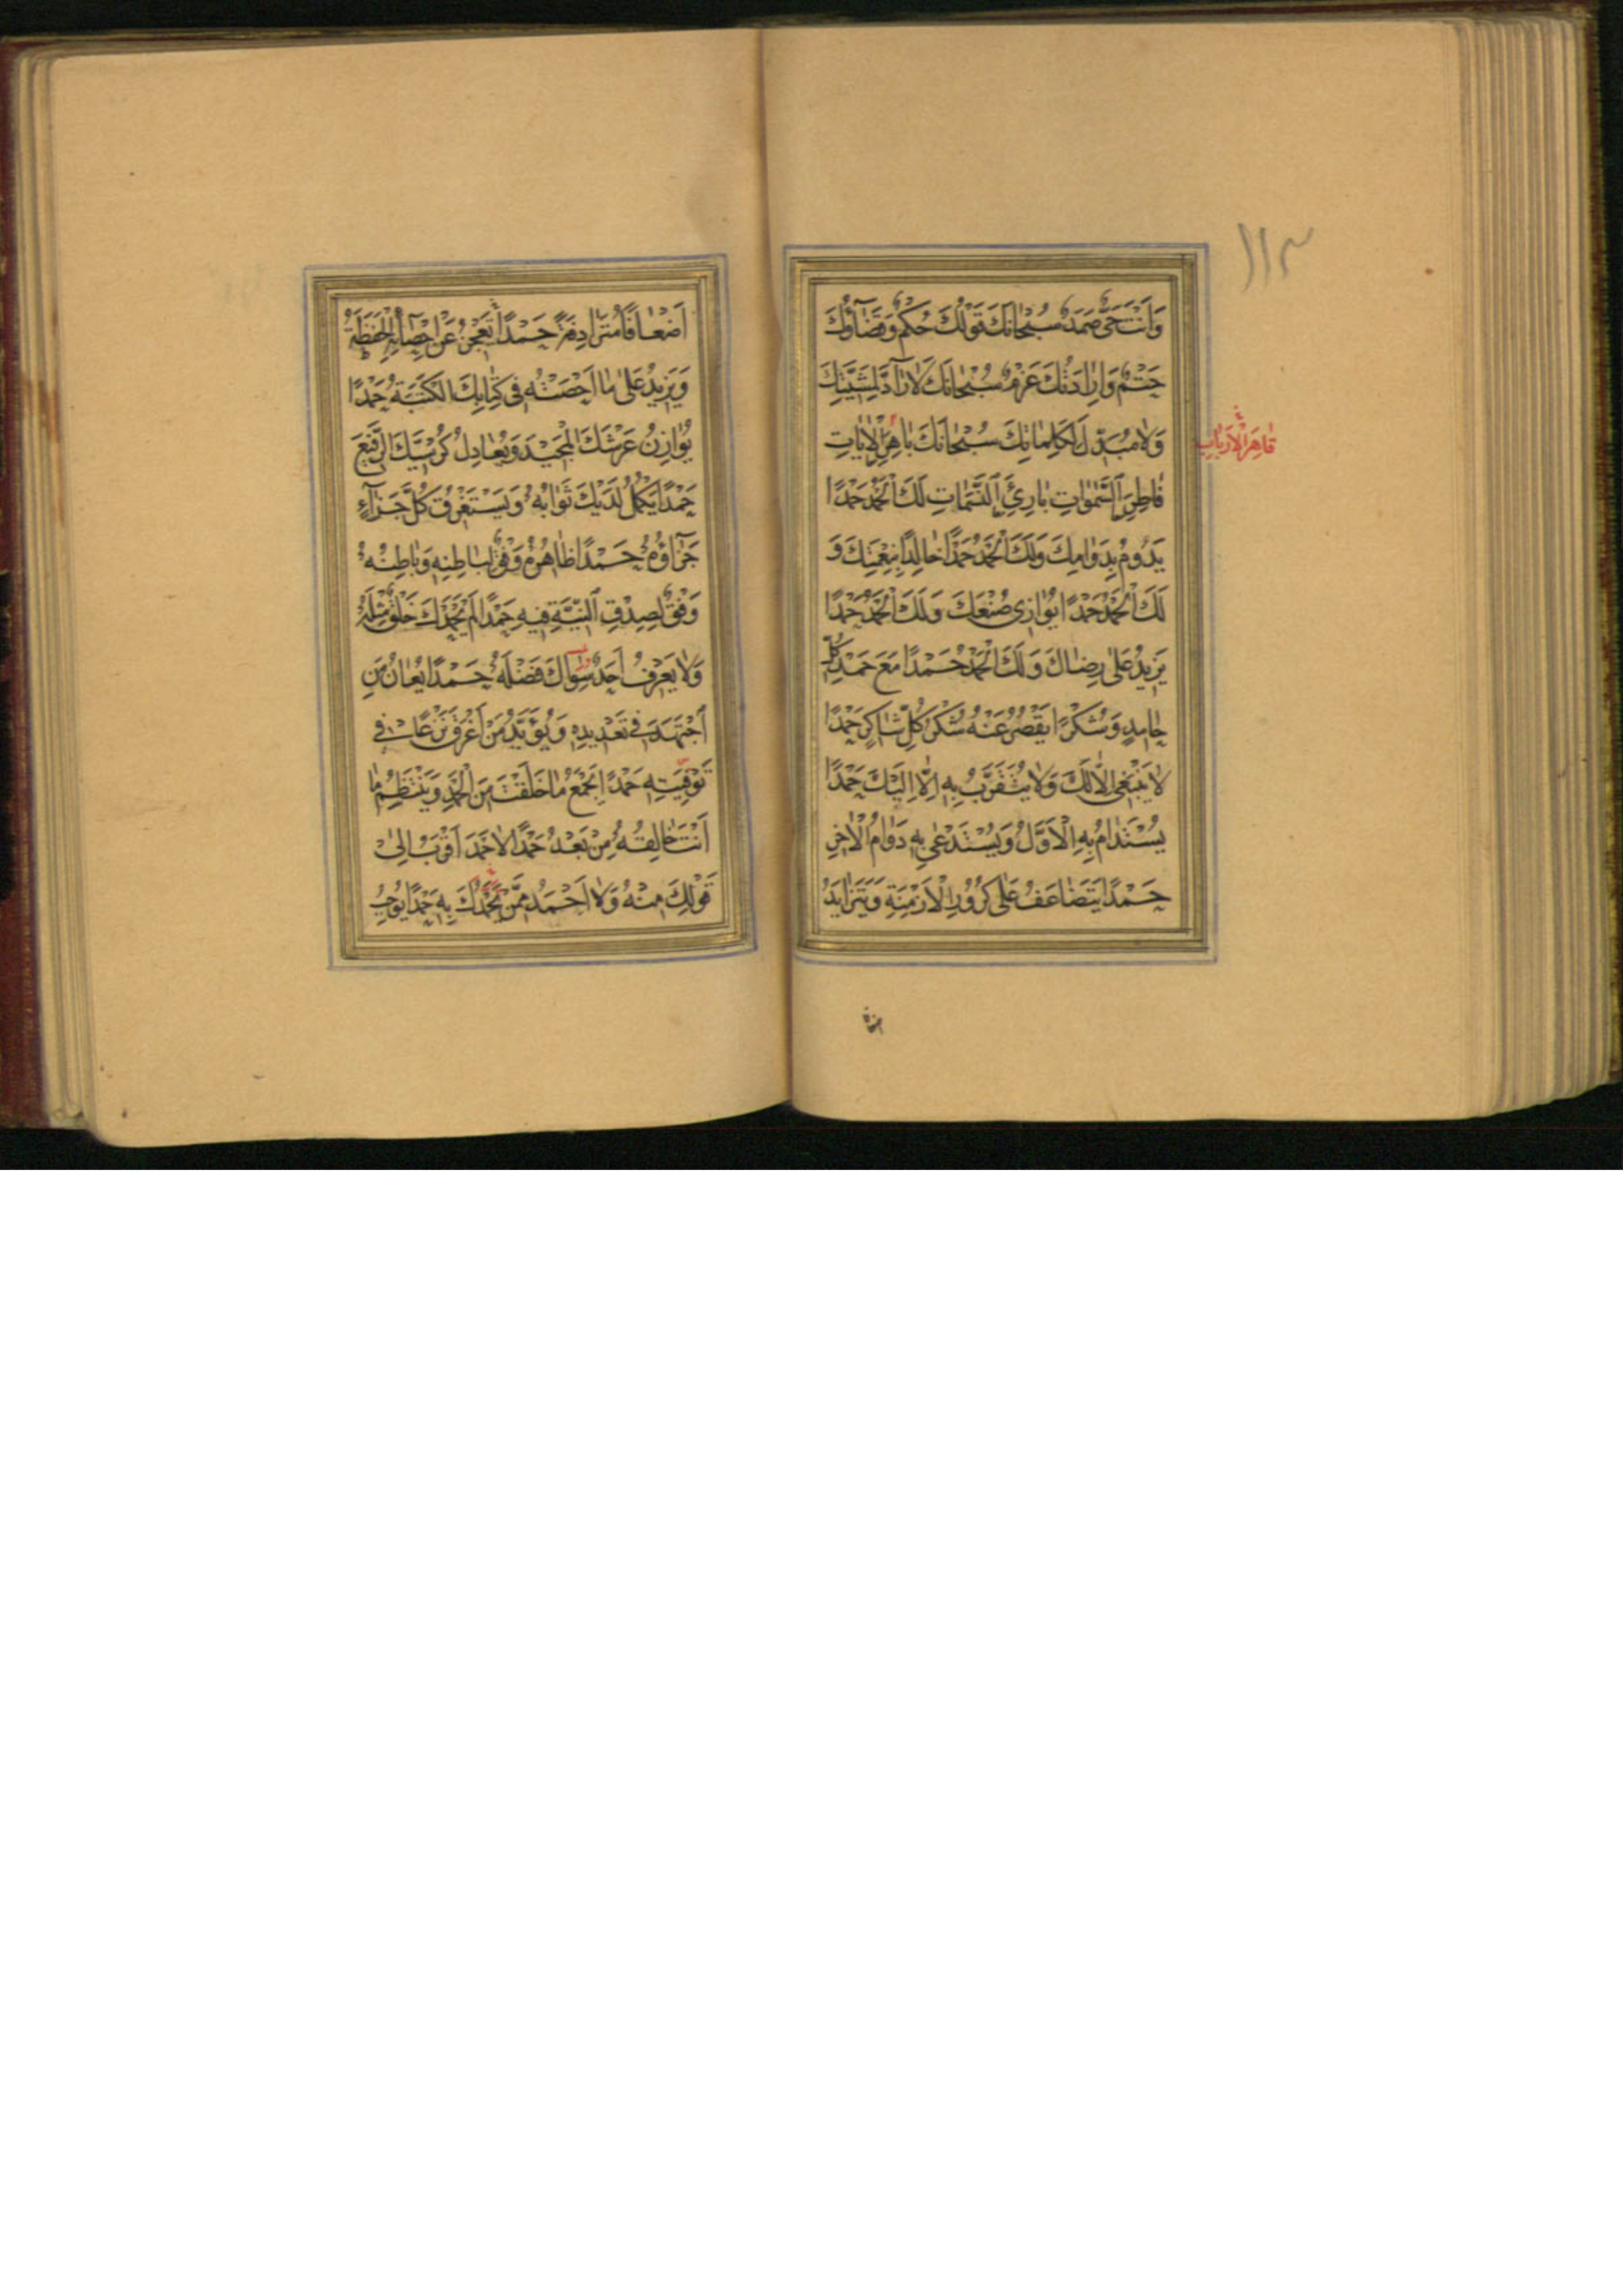 ١١٣
وَاَنْتَ حَىٌّ صَمَدٌ سُبْحٰانَكَ قَوْلُكَ حُكْمٌ وَقَضٰآؤُكَ
حَتْمٌ وَاِرٰادَتُكَ عَزْمٌ سُبْحٰانَكَ لٰا رٰآدَّ لِمَشِيَّتِكَ
وَلٰا مُبَدِّلَ لِكَلِمٰاتِكَ سُبْحٰانَكَ بٰاهِرَ الْاٰيٰاتِ
قٰاهِرَ الْاَرْبٰابِ
فٰاطِرَ السَّمٰوٰاتِ بٰارِئَ النَّسَمٰاتِ لَكَ الْحَمْدُ حَمْدًا
يَدُومُ بِدَوٰامِكَ وَلَكَ الْحَمْدُ حَمْدًا خٰالِدًا بِنِعْمَتِكَ وَ
لَكَ الْحَمْدُ حَمْدًا يُوٰازِى صُنْعَكَ وَلَكَ الْحَمْدُ حَمْدًا
يَزِيدُ عَلٰى رِضٰاكَ وَلَكَ الْحَمْدُ حَمْدًا مَعَ حَمْدِ كُلِّ
حٰامِدٍ وَشُكْرًا يَقْصُرُ عَنْهُ شُكْرُ كُلِّ شٰاكِرٍ حَمْدًا
لٰا يَنْبَغِى اِلّٰا لَكَ وَلٰا يُتَقَرَّبُ بِهِ اِلّٰا اِلَيْكَ حَمْدًا
يُسْتَدٰامُ بِهِ الْاَوَّلُ وَيُسْتَدْعٰى بِهِ دَوٰامُ الْاٰخِرِ
حَمْدًا يَتَضٰاعَفُ عَلٰى كُرُورِ الْاَزْمِنَةِ وَيَتَزٰايَدُ
اَضْعٰافًا مُتَرٰادِفَةً حَمْدًا يَعْجِزُ عَنْ اِحْصٰآئِهِ الْحَفَظَةُ
وَيَزِيدُ عَلٰى مٰا اَحْصَتْهُ فِى كِتٰابِكَ الْكَتَبَةُ حَمْدًا
يُوٰازِنُ عَرْشَكَ الْمَجِيدَ وَيُعٰادِلُ كُرْسِيَّكَ الرَّفِيعَ
حَمْدًا يَكْمُلُ لَدَيْكَ ثَوٰابُهُ وَيَسْتَغْرِقُ كُلَّ جَزٰآءٍ
جَزٰآؤُهُ حَمْدًا ظٰاهِرُهُ وَفْقٌ لِبٰاطِنِهِ وَبٰاطِنُهُ
وَفْقٌ لِصِدْقِ النِّيَّةِ فِيهِ حَمْدًا لَمْ يَحْمَدْكَ خَلْقٌ مِثْلَهُ
وَلٰا يَعْرِفُ اَحَدٌ سِوٰاكَ فَضْلَهُ حَمْدًا يُعٰانُ مَنِ
اجْتَهَدَ فِى تَعْدِيدِهِ وَيُؤَيَّدُ مَنْ اَغْرَقَ نَزْعًا فِى
تَوْفِيَتِهِ حَمْدًا يَجْمَعُ مٰا خَلَقْتَ مِنَ الْحَمْدِ وَيَنْتَظِمُ مٰا
اَنْتَ خٰالِقُهُ مِنْ بَعْدُ حَمْدًا لٰا حَمْدَ اَقْرَبُ اِلٰى
قَوْلِكَ مِنْهُ وَلٰا اَحْمَدَ مِمَّنْ يَحْمَدُكَ بِهِ حَمْدًا يُوجِبُ